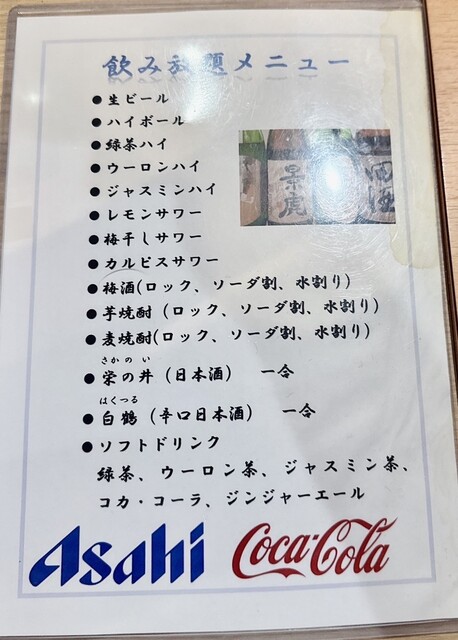 飲み放題メニュー
● 生ビール
● ハイボール
● 緑茶ハイ
● ウーロンハイ
● ジャスミンハイ
● レモンサワー
● 梅干しサワー
● カルピスサワー
● 梅酒(ロック、ソーダ割、水割り)
● 芋焼酎 (ロック、ソーダ割、水割り)
● 麦焼酎(ロック、ソーダ割、水割り)
さかのい
● 栄の井 (日本酒) 一合
はくつる
● 白鶴 (辛口日本酒) 一合
● ソフトドリンク
緑茶、ウーロン茶、ジャスミン茶、
コカ・コーラ、ジンジャーエール
景虎
Asahi Coca-Cola